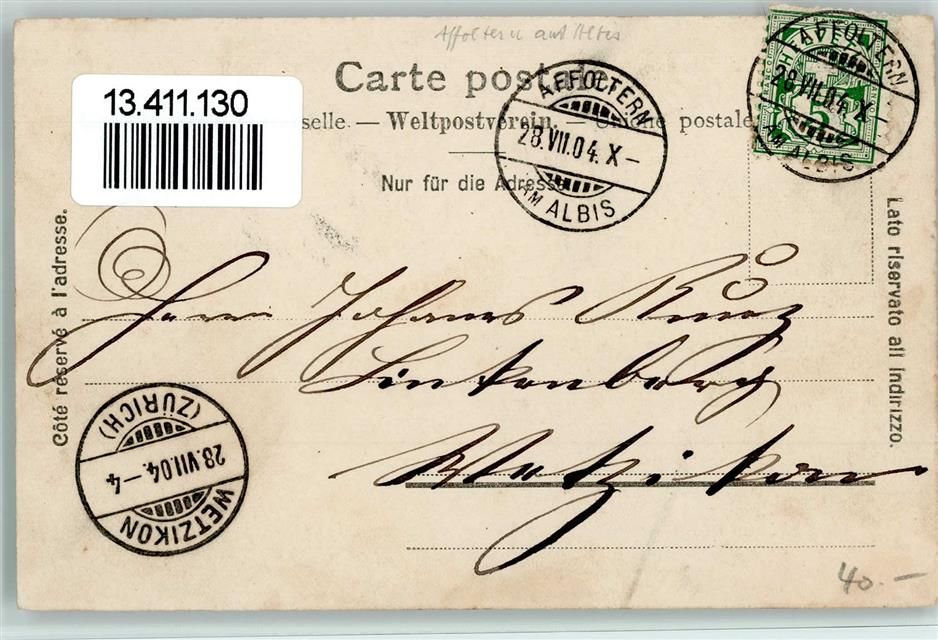 Affoltern am Albis
Carte postale
13.411.130
selle. — Weltpostverein. — postale
Nur für die Adresse
AFFOLTERN
28.VII.04.X–
AM ALBIS
AFFOLTERN
28.VII.04.X–
AM ALBIS
Côté réservé à l'adresse.
Lato riservato all indirizzo.
Herrn Johannes
Wetzikon
WETZIKON
28.VII.04.–4
(ZÜRICH)
40.–